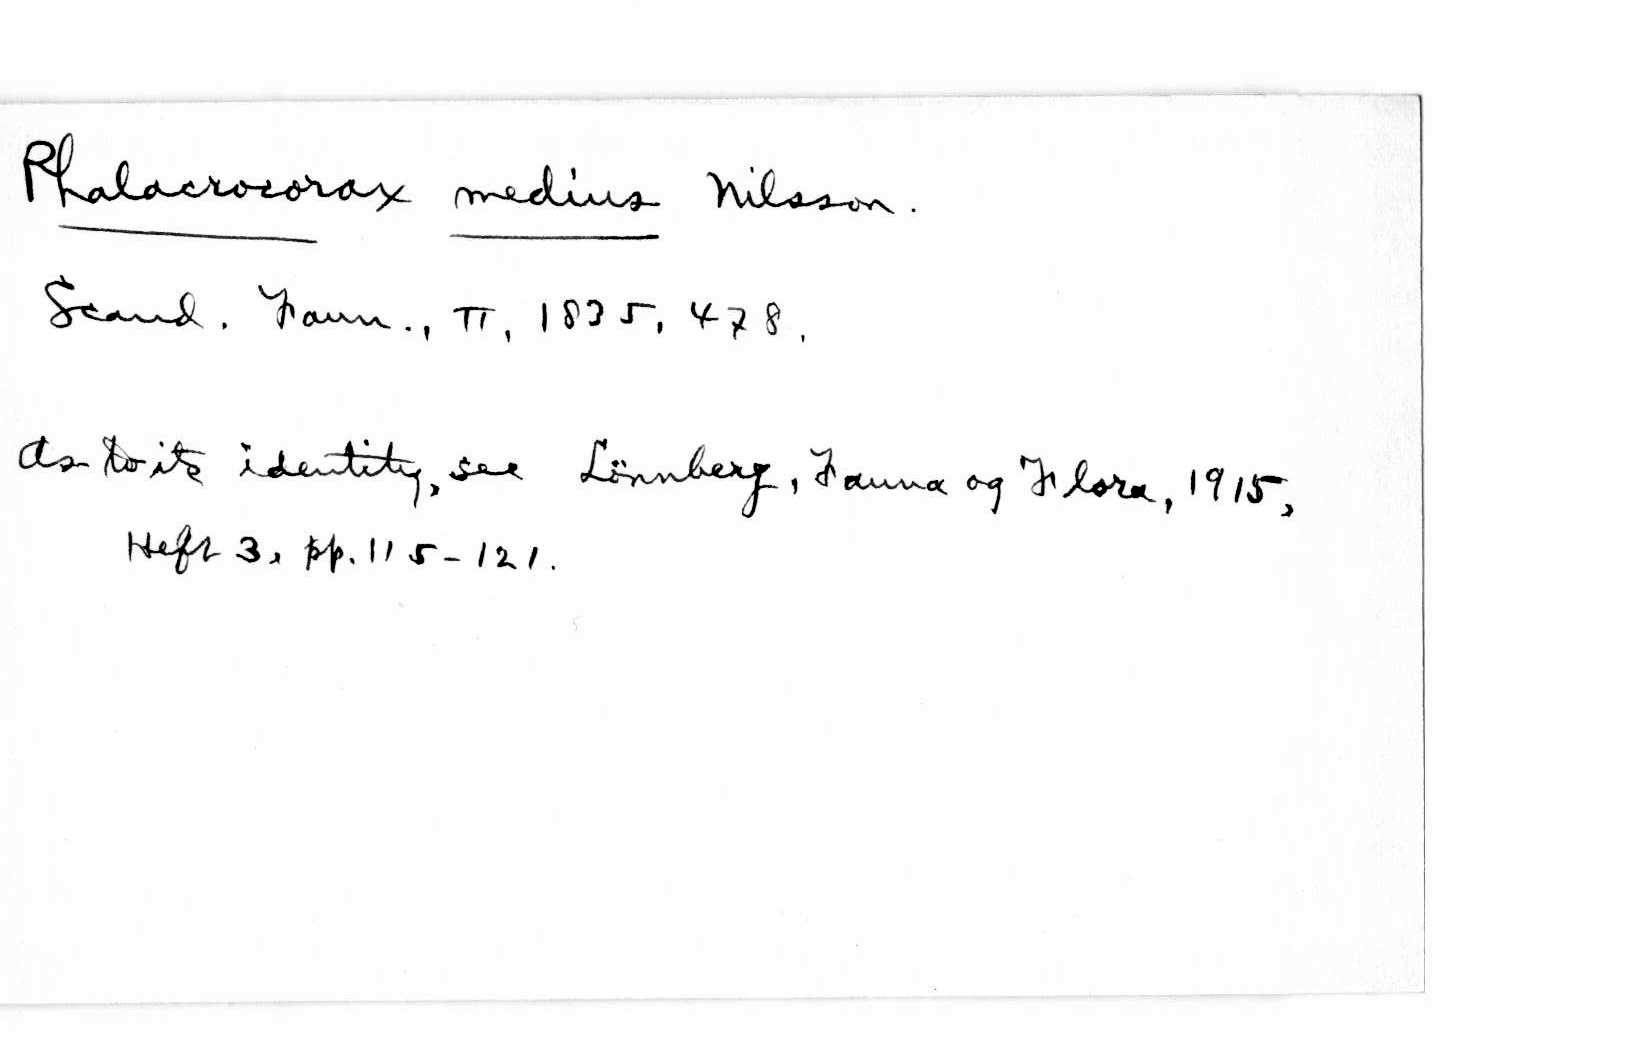 Phalacrocorax medius Nilsson.
Scand. Faun., II, 1835, 478.
As to its identity, see Lönnberg, Fauna og Flora, 1915,
Heft 3, pp. 115-121.